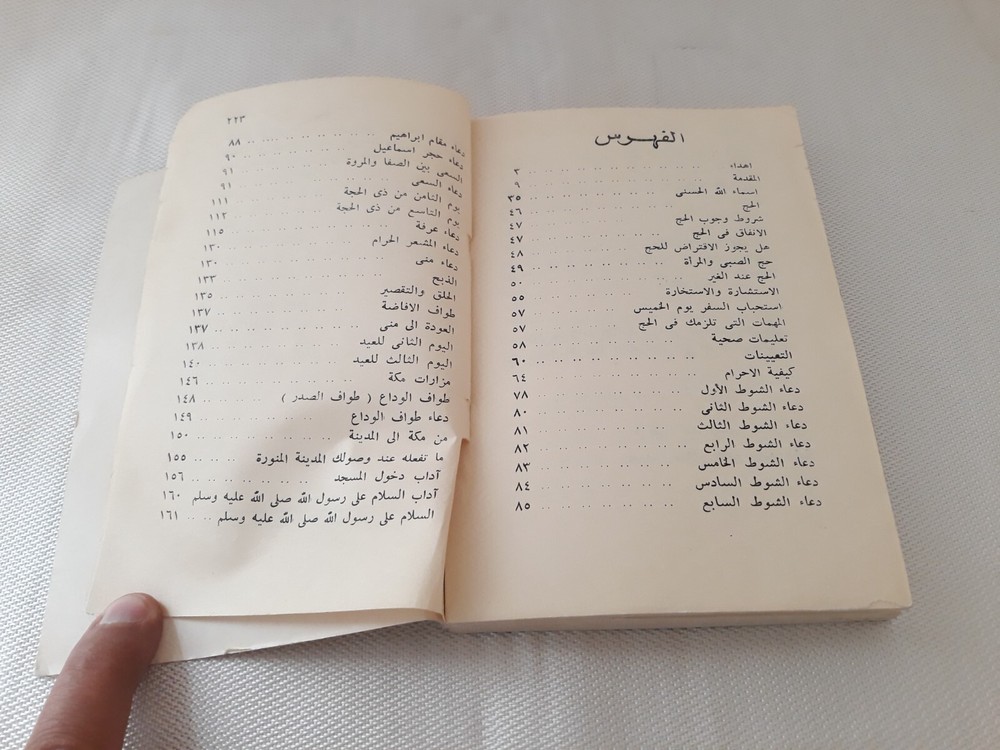 الفهرس
اهداء ٣
المقدمة ٩
اسماء الله الحسنى ٣٥
الحج ٤٦
شروط وجوب الحج ٤٧
الانفاق فى الحج ٤٧
هل يجوز الاقتراض للحج ٤٨
حج الصبى والمرأة ٤٩
الحج عند الغير ٥٠
الاستشارة والاستخارة ٥٥
استحباب السفر يوم الخميس ٥٧
المهمات التى تلزمك فى الحج ٥٧
تعليمات صحية ٥٨
التعيينات ٦٠
كيفية الاحرام ٦٤
دعاء الشوط الأول ٧٨
دعاء الشوط الثانى ٨٠
دعاء الشوط الثالث ٨١
دعاء الشوط الرابع ٨٢
دعاء الشوط الخامس ٨٣
دعاء الشوط السادس ٨٤
دعاء الشوط السابع ٨٥
٢٢٣
دعاء مقام ابراهيم ٨٨
دعاء حجر اسماعيل ٩٠
السعى بين الصفا والمروة ٩١
دعاء السعى ٩١
يوم الثامن من ذى الحجة ١١١
يوم التاسع من ذى الحجة ١١٢
دعاء عرفة ١١٥
دعاء المشعر الحرام ١٣٠
دعاء منى ١٣٠
الذبح ١٣٣
الحلق والتقصير ١٣٥
طواف الافاضة ١٣٧
العودة الى منى ١٣٧
اليوم الثانى للعيد ١٣٨
اليوم الثالث للعيد ١٤٠
مزارات مكة ١٤٦
طواف الوداع ( طواف الصدر ) ١٤٨
دعاء طواف الوداع ١٤٩
من مكة الى المدينة ١٥٠
ما تفعله عند وصولك المدينة المنورة ١٥٥
آداب دخول المسجد ١٥٦
آداب السلام على رسول الله صلى الله عليه وسلم ١٦٠
السلام على رسول الله صلى الله عليه وسلم ١٦١